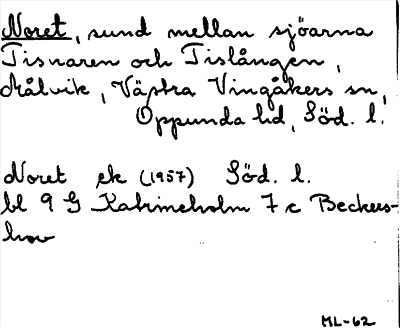 Noret, sund mellan sjöarna
Tisnaren och Tislången,
Målvik, Västra Vingåkers sn,
Oppunda hd, Söd. l.
Noret ek (1957) Söd. l.
bl 9 G Katrineholm 7 c Beckers-
hov
ML-62